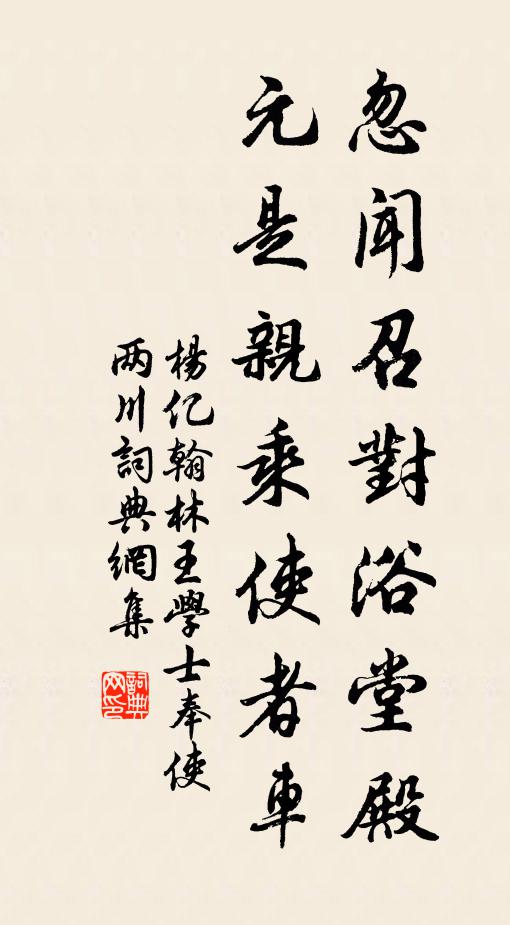 忽闻召對浴堂殿
元是親乘使者車
楊亿翰林王學士奉使
两川詞典網集
詞典网印